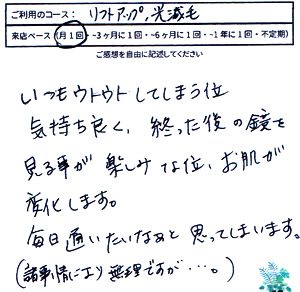 ご利用のコース: リフトアップ, 光減毛
来店ペース (月1回・~3ヶ月に1回・~6ヶ月に1回・~1年に1回・不定期)
ご感想を自由に記述してください
いつもウトウトしてしまう位
気持ち良く、終った後の鏡を
見る事が楽しみな位、お肌が
変化します。
毎日通いたいなぁと思ってしまいます。
(諸事情により無理ですが…。)